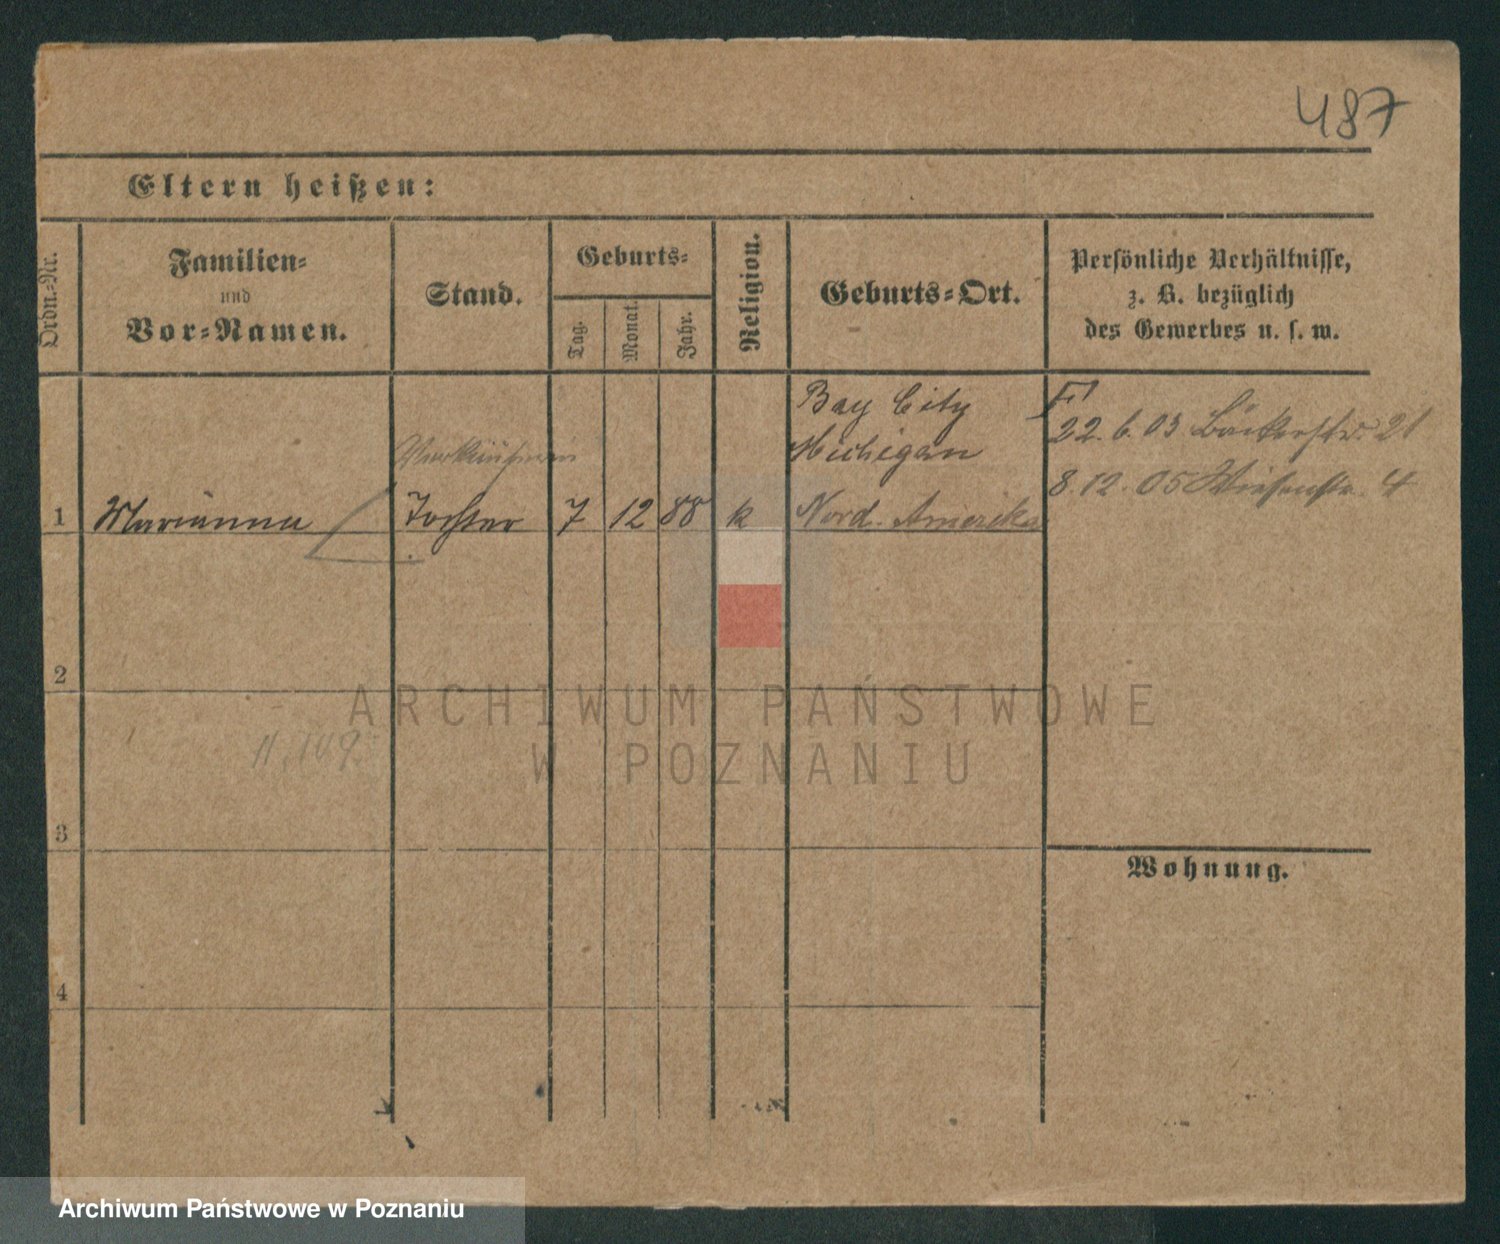 487
Eltern heißen:
Ordn.-Nr.
Familien-
und
Vor-Namen.
Stand.
Geburts-
Tag.
Monat.
Jahr.
Religion.
Geburts-Ort.
Persönliche Verhältnisse,
z. B. bezüglich
des Gewerbes u. s. w.
Bay City
Michigan
Verkäuferin
22.6.03 Bäckerstr. 21
8.12.05 Wiesenstr. 4
1 Marianna Tochter 7 12 88 k Nord-Amerika
2
ARCHIWUM PAŃSTWOWE
W POZNANIU
11.149
3
Wohnung.
4
Archiwum Państwowe w Poznaniu